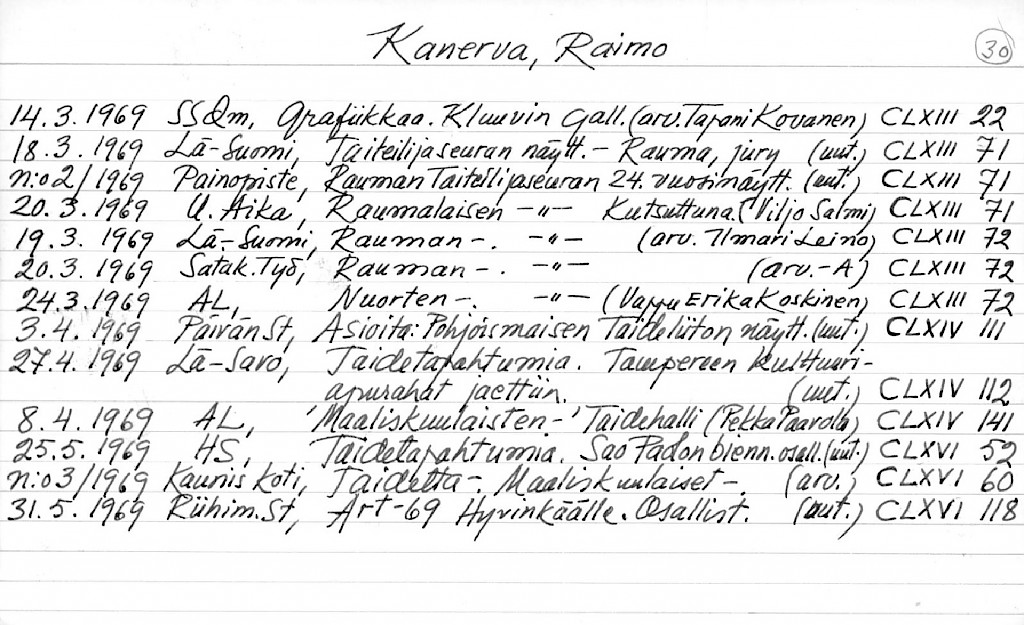 Kanerva, Raimo 30
14.3.1969 SSdm, Grafiikkaa. Kluuvin Gall. (arv. Tapani Kovanen) CLXIII 22
18.3.1969 Lä-Suomi, Taiteilijaseuran näytt. - Rauma, jury (uut.) CLXIII 71
n:o 2/1969 Painopiste, Rauman Taiteilijaseuran 24. vuosinäytt. (uut.) CLXIII 71
20.3.1969 U. Aika, Raumalaisen -"- Kutsuttuna. (Viljo Salmi) CLXIII 71
19.3.1969 Lä-Suomi, Rauman -. -"- (arv. Ilmari Leino) CLXIII 72
20.3.1969 Satak. Työ, Rauman -. -"- (arv. -A) CLXIII 72
24.3.1969 AL, Nuorten -. -"- (Vappu Erika Koskinen) CLXIII 72
3.4.1969 Päivän St, Asioita: Pohjoismaisen Taideliiton näytt. (uut.) CLXIV 111
27.4.1969 Lä-Savo, Taidetapahtumia. Tampereen kulttuuri-
apurahat jaettiin. (uut.) CLXIV 112
8.4.1969 AL, 'Maaliskuulaisten -' Taidehalli (Pekka Paavola) CLXIV 141
25.5.1969 HS, Taidetapahtumia. Sao Padon bienn. osall. (uut.) CLXVI 52
n:o 3/1969 Kaunis Koti, Taidetta -. Maaliskuulaiset -. (arv.) CLXVI 60
31.5.1969 Riihim. St, Art-69 Hyvinkäälle. Osallist. (uut.) CLXVI 118